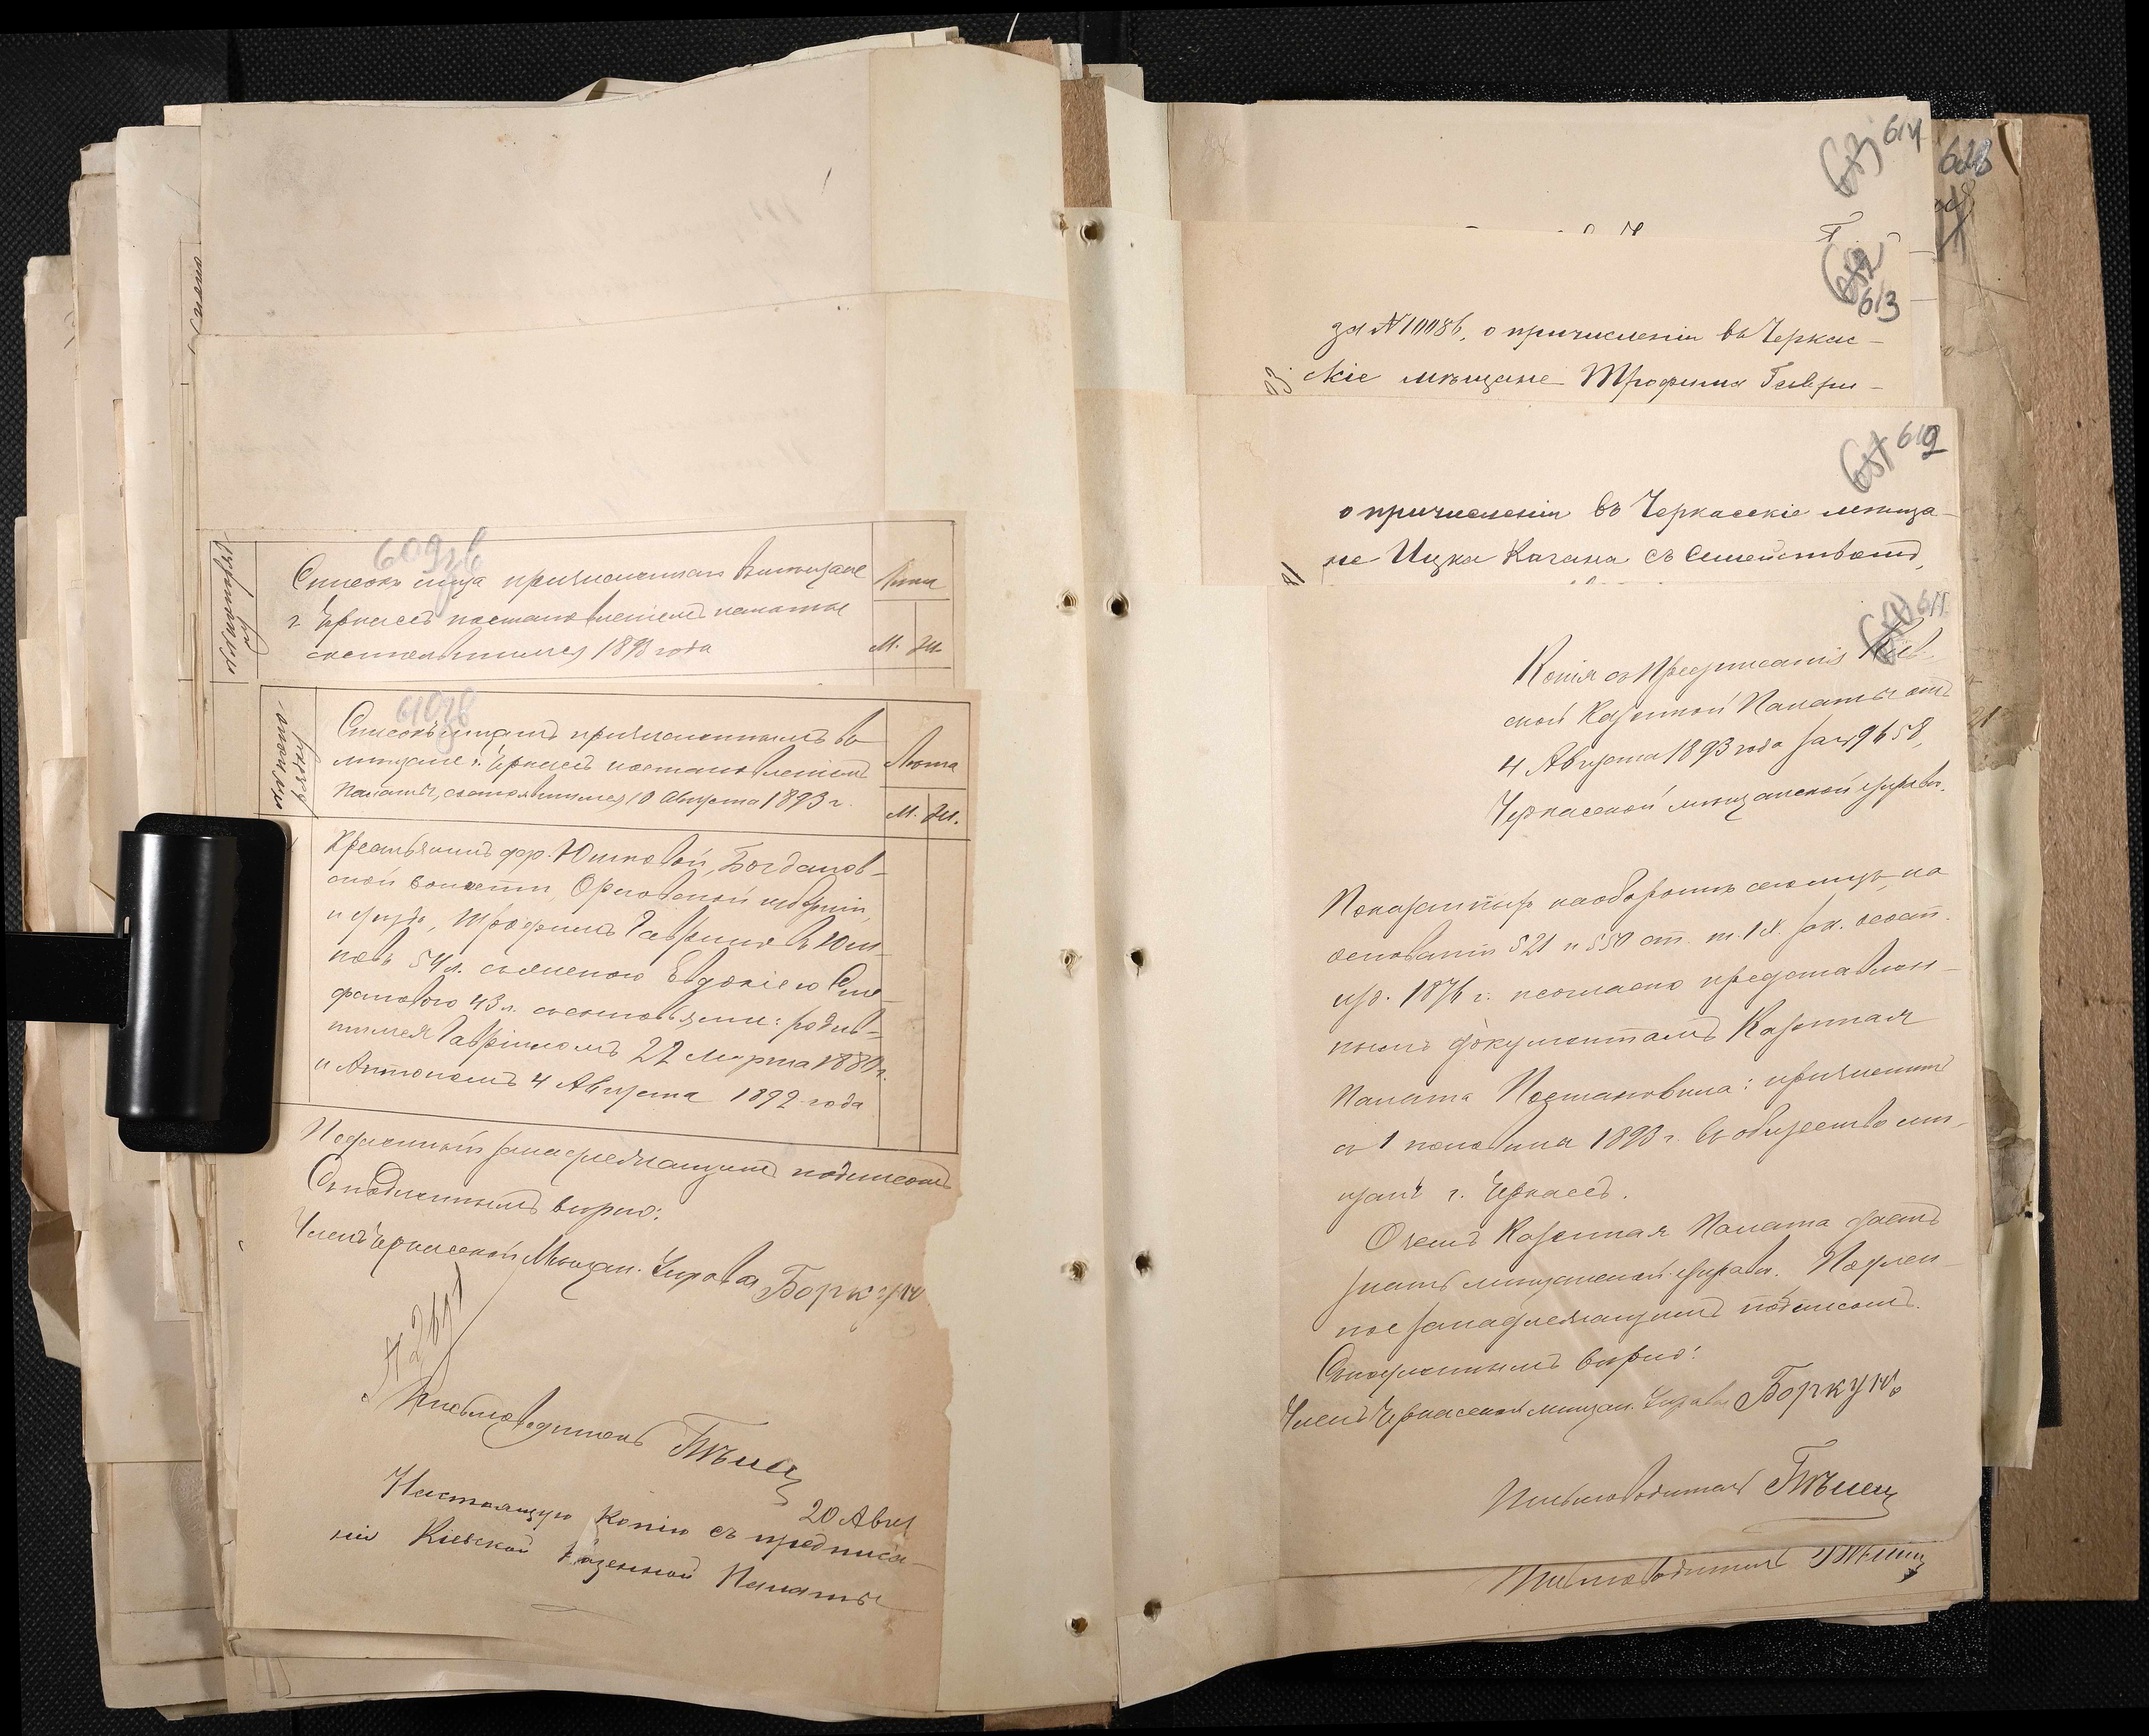 609 об
Списокъ лица причисленнаго въ мещане
г. Черкассъ постановленiемъ палаты
состоявшимся 1893 года
Лета
М. Ж.
610 об
Списокъ лицамъ причисленнымъ въ
мещане г. Черкассъ постановленiемъ
Палаты, состоявшимся 10 Августа 1893 г.
Лета
М. Ж.
Крестьянинъ дер. Юшковой, Богданов-
ской волости, Орловской губернiи,
и уезда, Трофимъ Гавриловъ Юш-
ковъ 54 л. съ женою Евдокiею Сте-
фановою 43 л. съ сыновьями: родив-
шимся Гаврiиломъ 22 Марта 1880 г.
и Антономъ 4 Августа 1892 года
Подлинный за надлежащимъ подписомъ
Съ подлиннымъ верно:
Членъ Черкасской Мещан. Управы Боркунъ
Письмоводитель
20 Авг
Настоящую копiю съ предписа-
нiя Кiевской Казенной Палаты
614
613
за № 10086, о причисленiи въ Черкас-
скiе мѣщане Трофима Гаври-
612
о причисленiи въ Черкасскiе мѣща-
не Ицка Кагана съ Семействомъ,
611
Копiя съ Предписанiя Кiев-
ской Казенной Палаты отъ
4 Августа 1893 года за № 9658,
Черкасской мещанской управе.
Показанныхъ на обороте сего лицъ, на
основанiи 521 и 550 ст. т. IX зак. сост.
изд. 1876 г. и согласно представлен-
нымъ документамъ Казенная
Палата Постановила: причислить
съ 1 половины 1893 г. въ общество ме-
щанъ г. Черкассъ.
О чемъ Казенная Палата даетъ
знать мещанской управе. Подлин-
ное за надлежащимъ подписомъ.
Съ подлиннымъ верно:
Членъ Черкасской мещан. Управы Боркунъ
Письмоводитель
Письмоводитель